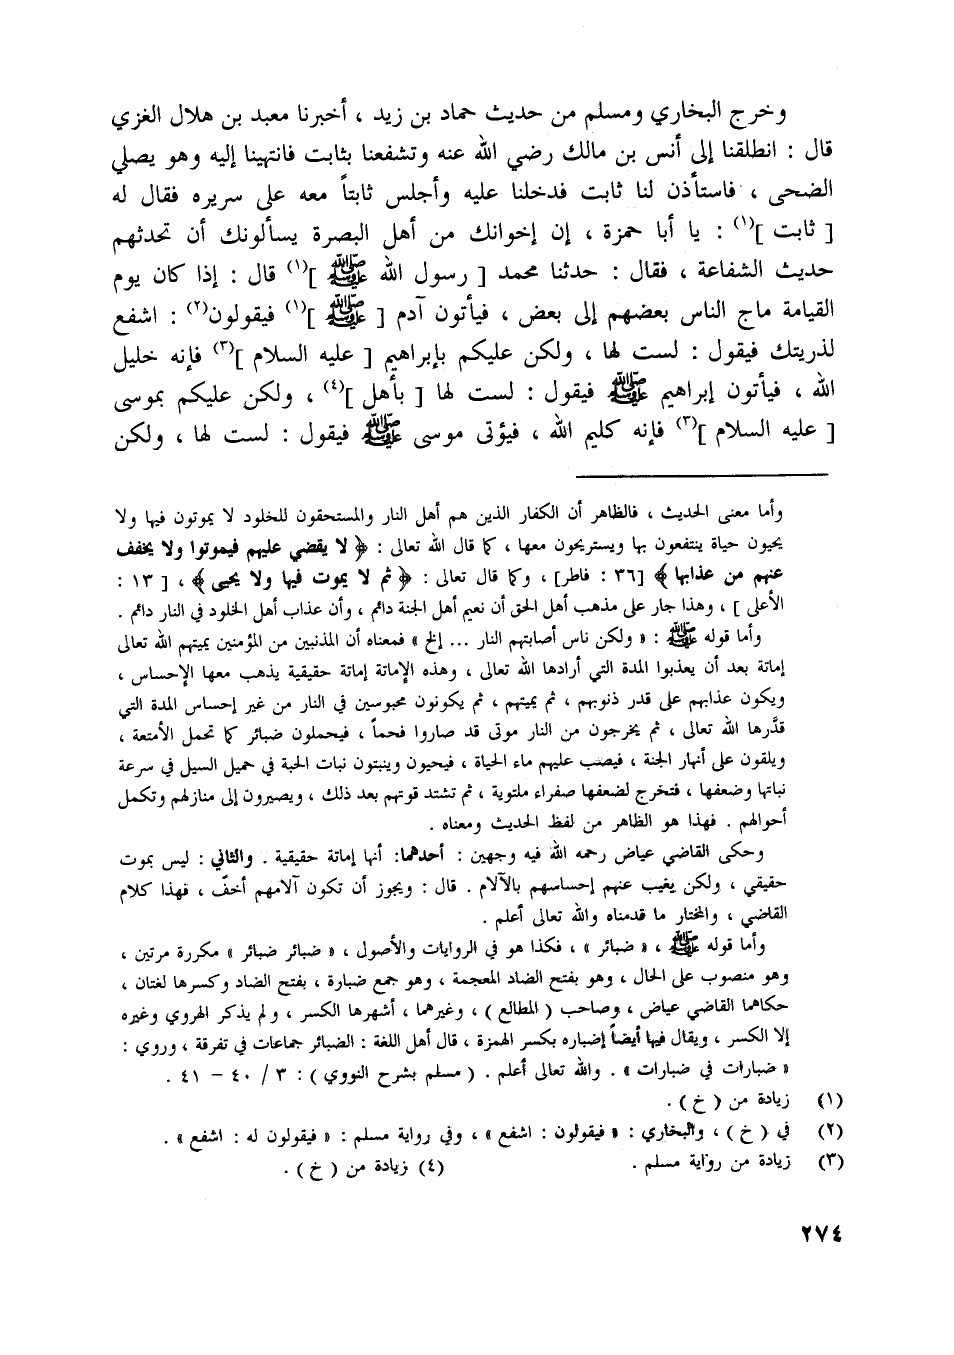 وخرج البخاري ومسلم من حديث حماد بن زيد ، أخبرنا معبد بن هلال الغزي
قال : انطلقنا إلى أنس بن مالك رضي الله عنه وتشفعنا بثابت فانتهينا إليه وهو يصلي
الضحى ، فاستأذن لنا ثابت فدخلنا عليه وأجلس ثابتاً معه على سريره فقال له
[ ثابت ](١) : يا أبا حمزة ، إن إخوانك من أهل البصرة يسألونك أن تحدثهم
حديث الشفاعة ، فقال : حدثنا محمد [ رسول الله ﷺ ](١) قال : إذا كان يوم
القيامة ماج الناس بعضهم إلى بعض ، فيأتون آدم [ ﷺ ](١) فيقولون(٢) : اشفع
لذريتك فيقول : لست لها ، ولكن عليكم بإبراهيم [ عليه السلام ](٣) فإنه خليل
الله ، فيأتون إبراهيم ﷺ فيقول : لست لها [ بأهل ](٤) ، ولكن عليكم بموسى
[ عليه السلام ](٣) فإنه كليم الله ، فيؤتى موسى ﷺ فيقول : لست لها ، ولكن
وأما معنى الحديث ، فالظاهر أن الكفار الذين هم أهل النار والمستحقون للخلود لا يموتون فيها ولا
يحيون حياة ينتفعون بها ويستريحون معها ، كما قال الله تعالى : ﴿ لا يقضي عليهم فيموتوا ولا يخفف
عنهم من عذابها ﴾ [٣٦ : فاطر] ، وكما قال تعالى : ﴿ ثم لا يموت فيها ولا يحيى ﴾ ، [ ١٣ :
الأعلى ] ، وهذا جار على مذهب أهل الحق أن نعيم أهل الجنة دائم ، وأن عذاب أهل الخلود في النار دائم .
وأما قوله ﷺ : « ولكن ناس أصابتهم النار ... إلخ » فمعناه أن المذنبين من المؤمنين يميتهم الله تعالى
إماتة بعد أن يعذبوا المدة التي أرادها الله تعالى ، وهذه الإماتة إماتة حقيقية يذهب معها الإحساس ،
ويكون عذابهم على قدر ذنوبهم ، ثم يميتهم ، ثم يكونون محبوسين في النار من غير إحساس المدة التي
قدَّرها الله تعالى ، ثم يخرجون من النار موتى قد صاروا فحماً ، فيحملون ضبائر كما تحمل الأمتعة ،
ويلقون على أنهار الجنة ، فيصب عليهم ماء الحياة ، فيحيون وينبتون نبات الحبة في حميل السيل في سرعة
نباتها وضعفها ، فتخرج لضعفها صفراء ملتوية ، ثم تشتد قوتهم بعد ذلك ، ويصيرون إلى منازلهم وتكمل
أحوالهم . فهذا هو الظاهر من لفظ الحديث ومعناه .
وحكى القاضي عياض رحمه الله فيه وجهين : أحدهما: أنها إماتة حقيقية . والثاني : ليس بموت
حقيقي ، ولكن يغيب عنهم إحساسهم بالآلام . قال : ويجوز أن تكون آلامهم أخفّ ، فهذا كلام
القاضي ، والمختار ما قدمناه والله تعالى أعلم .
وأما قوله ﷺ ، « ضبائر » ، فكذا هو في الروايات والأصول ، « ضبائر ضبائر » مكررة مرتين ،
وهو منصوب على الحال ، وهو بفتح الضاد المعجمة ، وهو جمع ضبارة ، بفتح الضاد وكسرها لغتان ،
حكاهما القاضي عياض ، وصاحب ( المطالع ) ، وغيرهما ، أشهرها الكسر ، ولم يذكر الهروي وغيره
إلا الكسر ، ويقال فيها أيضاً إضباره بكسر الهمزة ، قال أهل اللغة : الضبائر جماعات في تفرقة ، وروي :
« ضبارات في ضبارات » . والله تعالى أعلم . ( مسلم بشرح النووي ) : ٣ / ٤٠ – ٤١ .
(١) زيادة من ( خ ) .
(٢) في ( خ ) ، والبخاري : « فيقولون : اشفع » ، وفي رواية مسلم : « فيقولون له : اشفع » .
(٣) زيادة من رواية مسلم . (٤) زيادة من ( خ ) .
٢٧٤